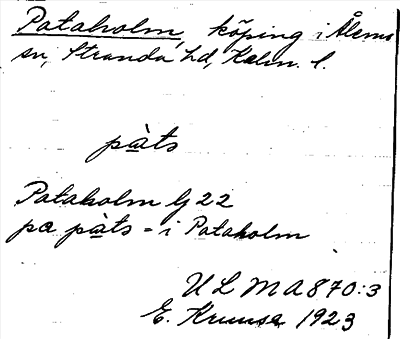 Pataholm, köping i Ålems
sn, Stranda hd, Kalm. l.
pàts
Pataholm G 22
pa pàts = i Pataholm
ULMA 870:3
E. Kruuse 1923